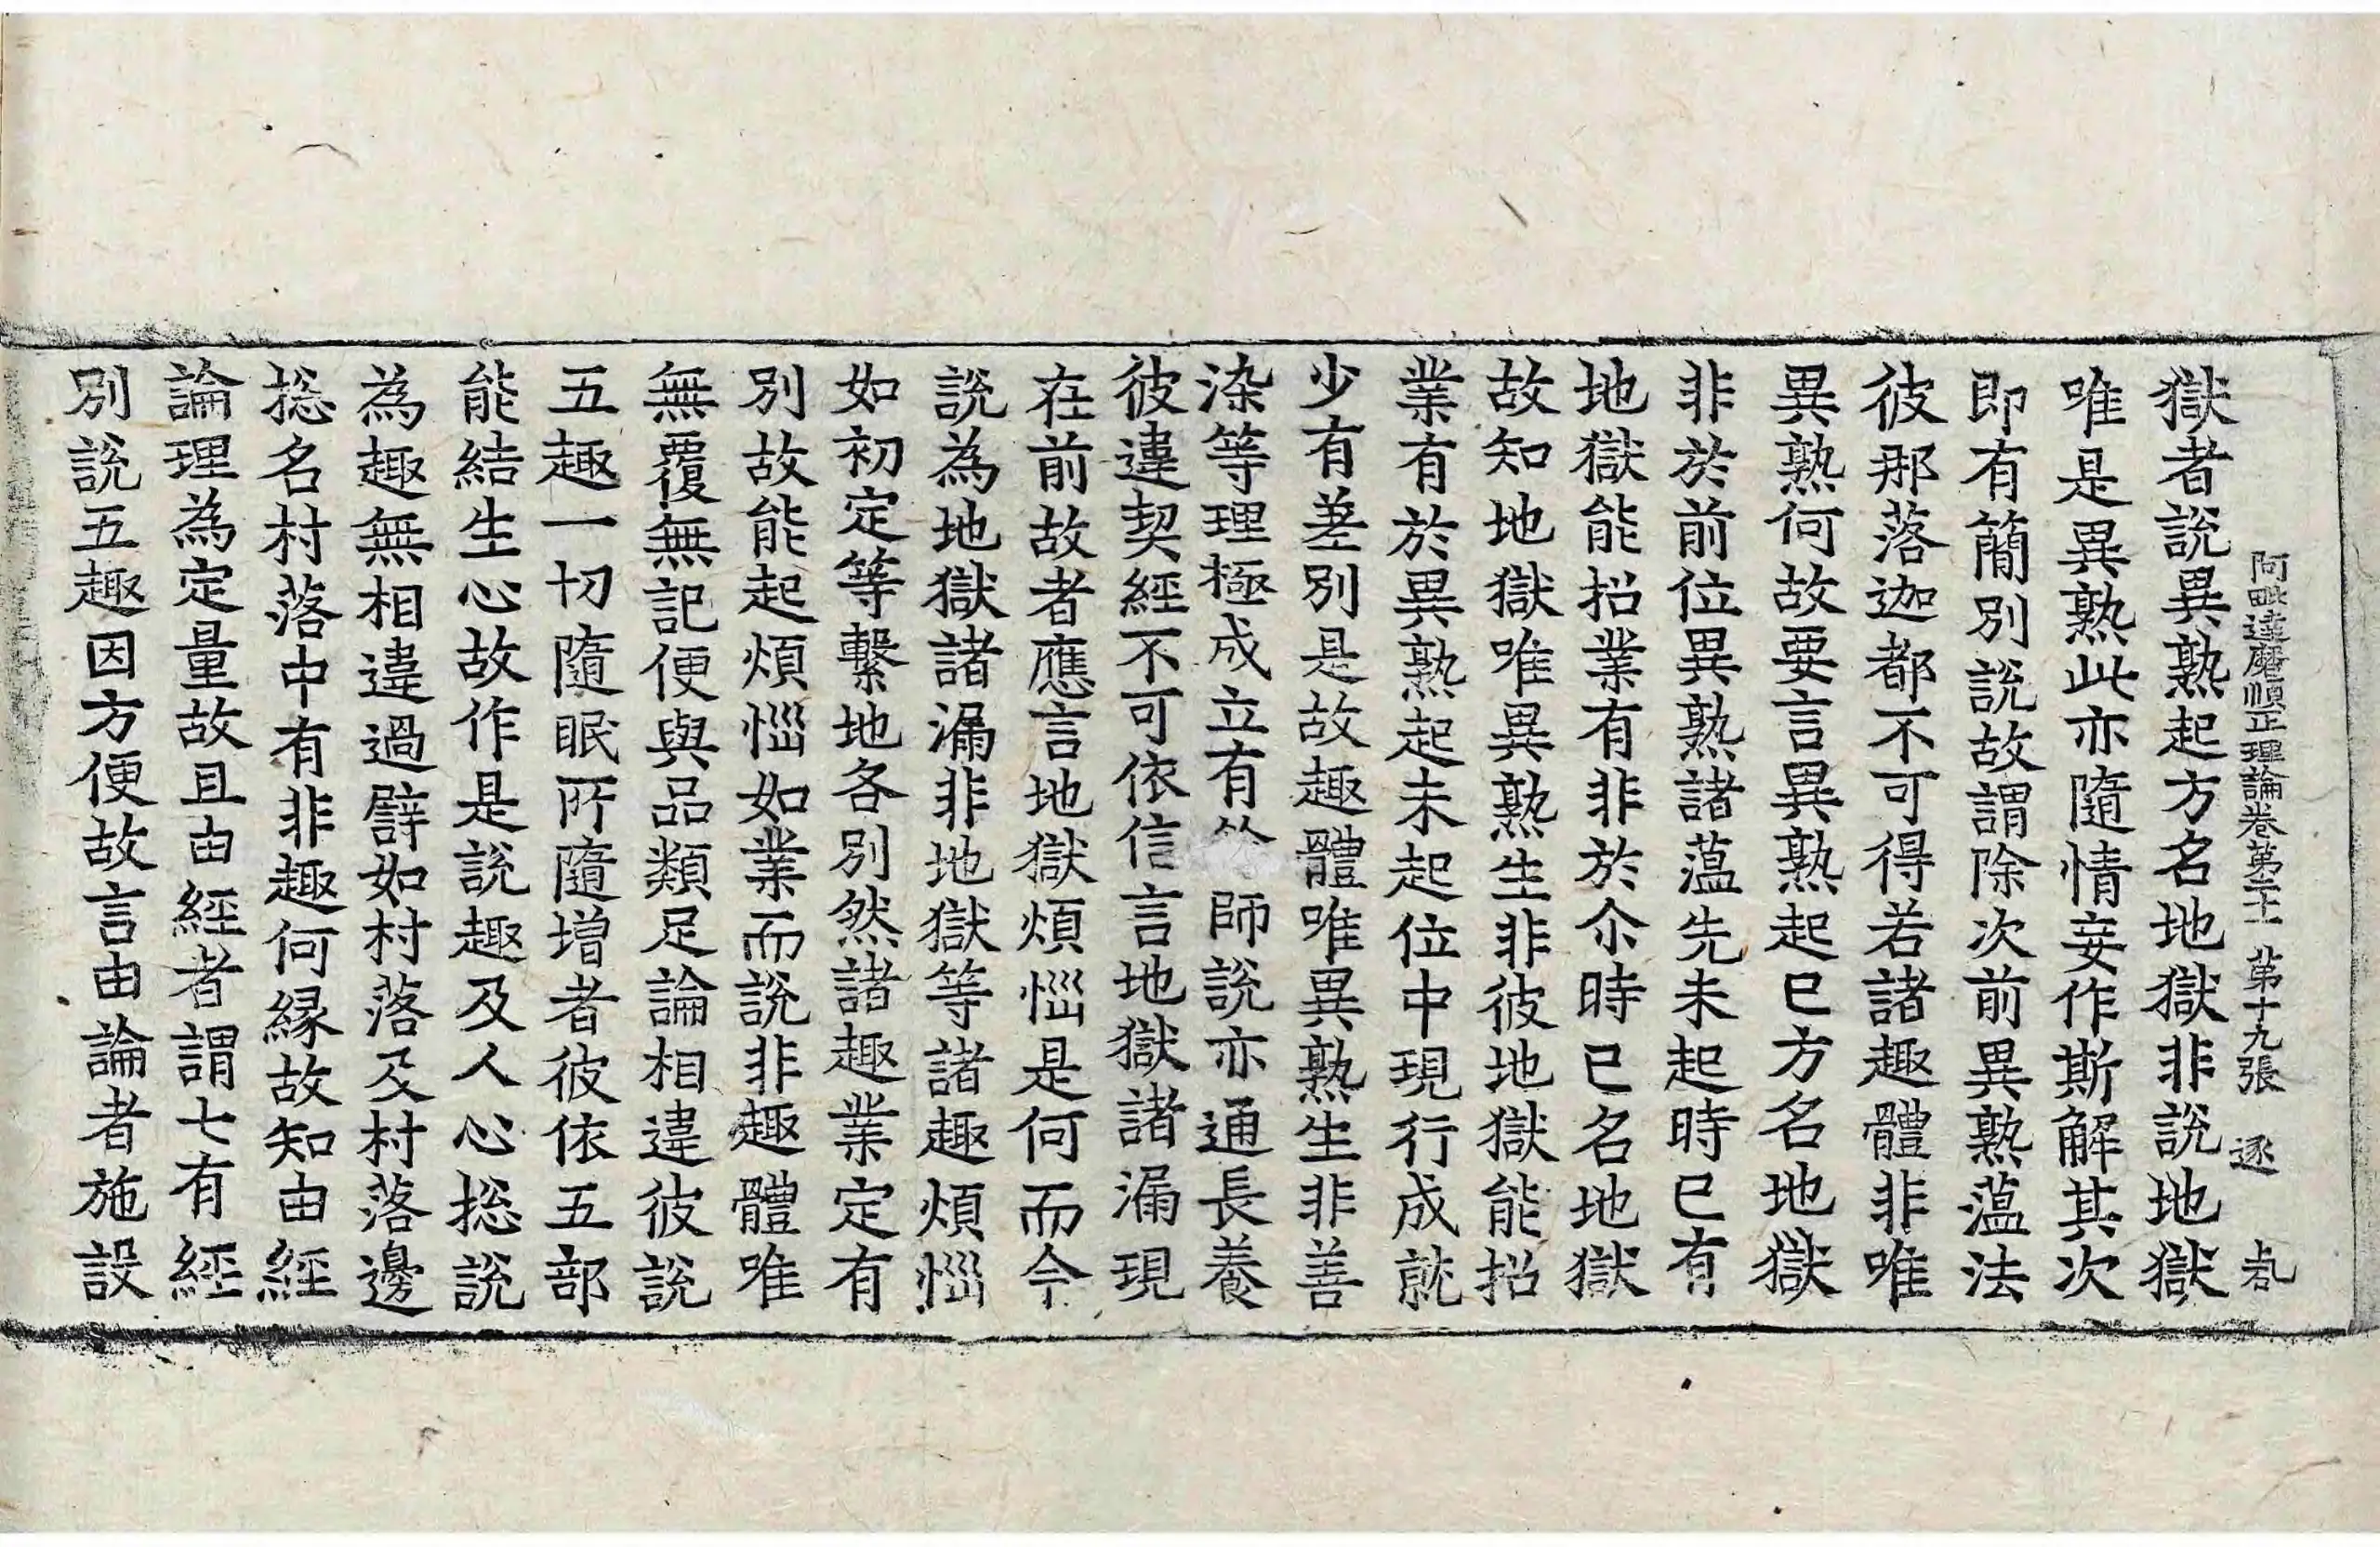 阿毗達磨順正理論卷第二十一 第十九張 逐
獄者說異熟起方名地獄非說地獄
唯是異熟此亦隨情妄作斯解其次
即有簡別說故謂除次前異熟蘊法
彼那落迦都不可得若諸趣體非唯
異熟何故要言異熟起已方名地獄
非於前位異熟諸蘊先未起時已有
地獄能招業有非於尒時已名地獄
故知地獄唯異熟生非彼地獄能招
業有於異熟起未起位中現行成就
少有差別是故趣體唯異熟生非善
染等理極成立有 師說亦通長養
彼違契經不可依信言地獄諸漏現
在前故者應言地獄煩惱是何而今
說為地獄諸漏非地獄等諸趣煩惱
如初定等繫地各別然諸趣業定有
別故能起煩惱如業而說非趣體唯
無覆無記便與品類足論相違彼說
五趣一切隨眠所隨增者彼依五部
能結生心故作是說趣及人心捴說
為趣無相違過辟如村落及村落邊
捴名村落中有非趣何緣故知由經
論理為定量故且由經者謂七有經
別說五趣因方便故言由論者施設